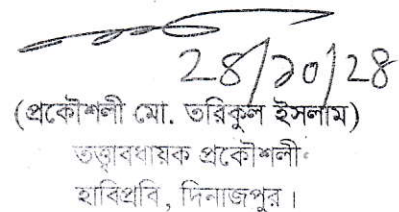 ২৪/১০/২৪
(প্রকৌশলী মো. তরিকুল ইসলাম)
তত্ত্বাবধায়ক প্রকৌশলী
হাবিপ্রবি, দিনাজপুর।